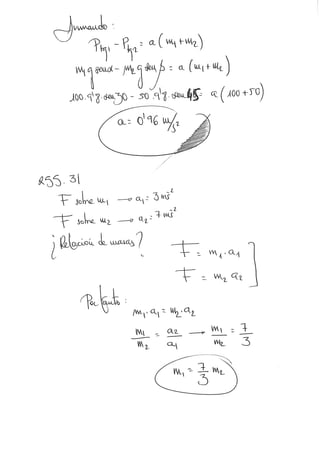 Sumando:
Ptg1 - Ptg2 = a (m1 + m2)
m1 g senα - m2 g sen β = a (m1 + m2)
100 · 9'8 · sen 30 - 50 · 9'8 · sen 45 = a (100 + 50)
a = 0'96 m/s²
RSS. 31
F sobre m1 → a1 = 3 ms²
F sobre m2 → a2 = 7 ms²
¿Relación de masas?
F = m1 · a1
F = m2 a2
Por tanto:
m1 · a1 = m2 · a2
m1/m2 = a2/a1 → m1/m2 = 7/3
m1 = 7/3 m2